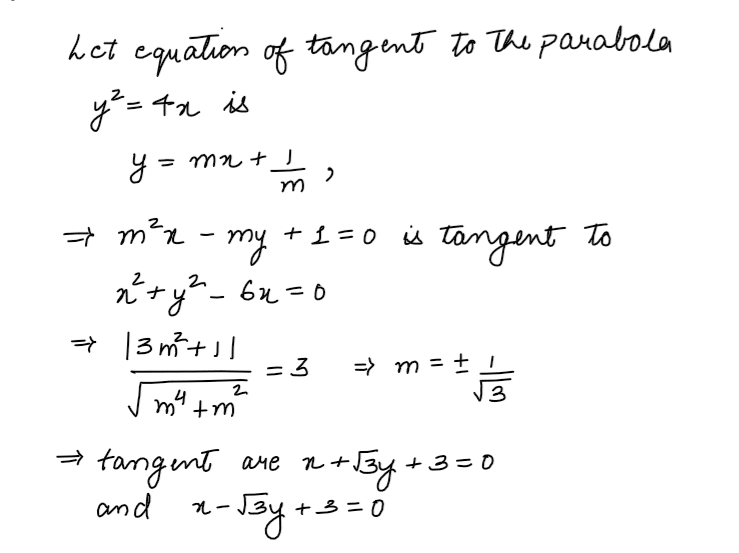 Let equation of tangent to the parabola
y² = 4x is
y = mx + 1/m ,
⇒ m²x - my + 1 = 0 is tangent to
x² + y² - 6x = 0
⇒ |3m² + 1| / √(m⁴ + m²) = 3 ⇒ m = ± 1/√3
⇒ tangent are x + √3y + 3 = 0
and x - √3y + 3 = 0